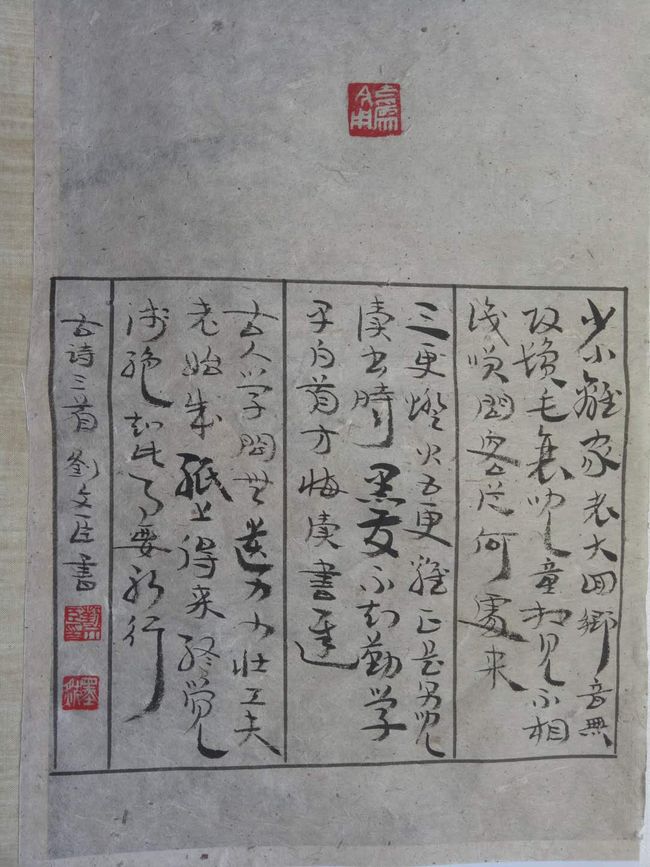 少小離家老大回鄉音無
改鬓毛衰兒童相見不相
识笑問客從何處来
三更燈火五更雞正是男兒
读书時黑发不知勤学
早白首方悔读書遲
古人学問無遺力少壮工夫
老始成紙上得来終覺
浅绝知此事要躬行
古诗三首 劉文臣書